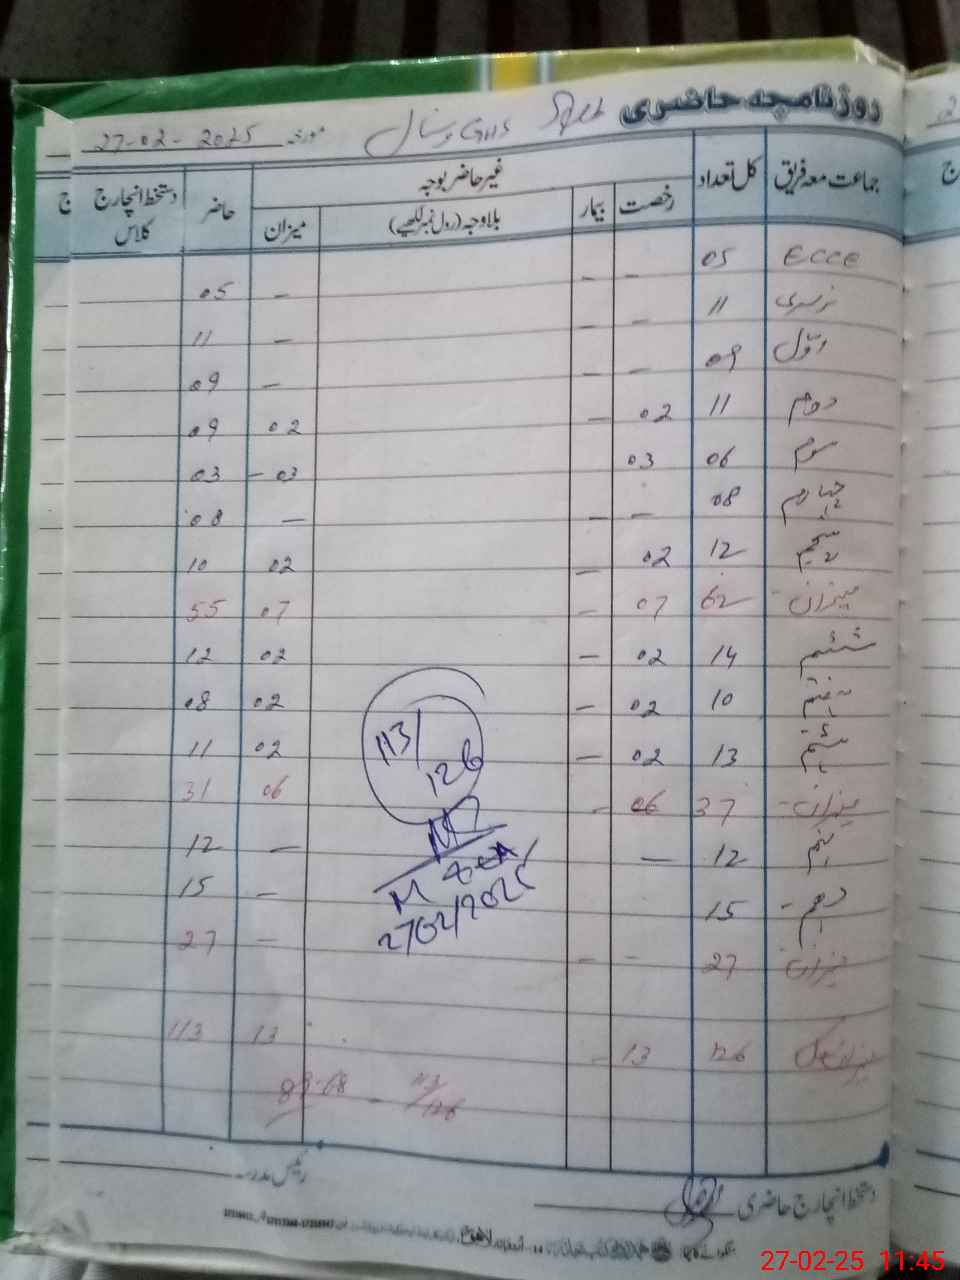 روزنامچہ حاضری GHS مورخہ 27-02-2025
جماعت معہ فریق کل تعداد غیر حاضر بوجہ حاضر دستخط انچارج کلاس
رخصت بیمار بلاوجہ (رول نمبر لکھیے) میزان
ECCE 05 – – – 05
نرسری 11 – – – 11
اوّل 09 – – – 09
دوم 11 02 – 02 09
سوم 06 03 – 03 03
چہارم 08 – – – 08
پنجم 12 02 – 02 10
میزان - 62 07 – 07 55
ششم 14 02 – 02 12
ہفتم 10 02 – 02 08
ہشتم 13 02 – 02 11
میزان - 37 06 - 06 31
نہم 12 – – 12
دہم - 15 – 15
میزان 27 - – – 27
میزان کل 126 13 - 13 113
113/126
27/02/2025
113/126 - 89-68
دستخط انچارج حاضری
رئیس مدرسہ
27-02-25 11:45